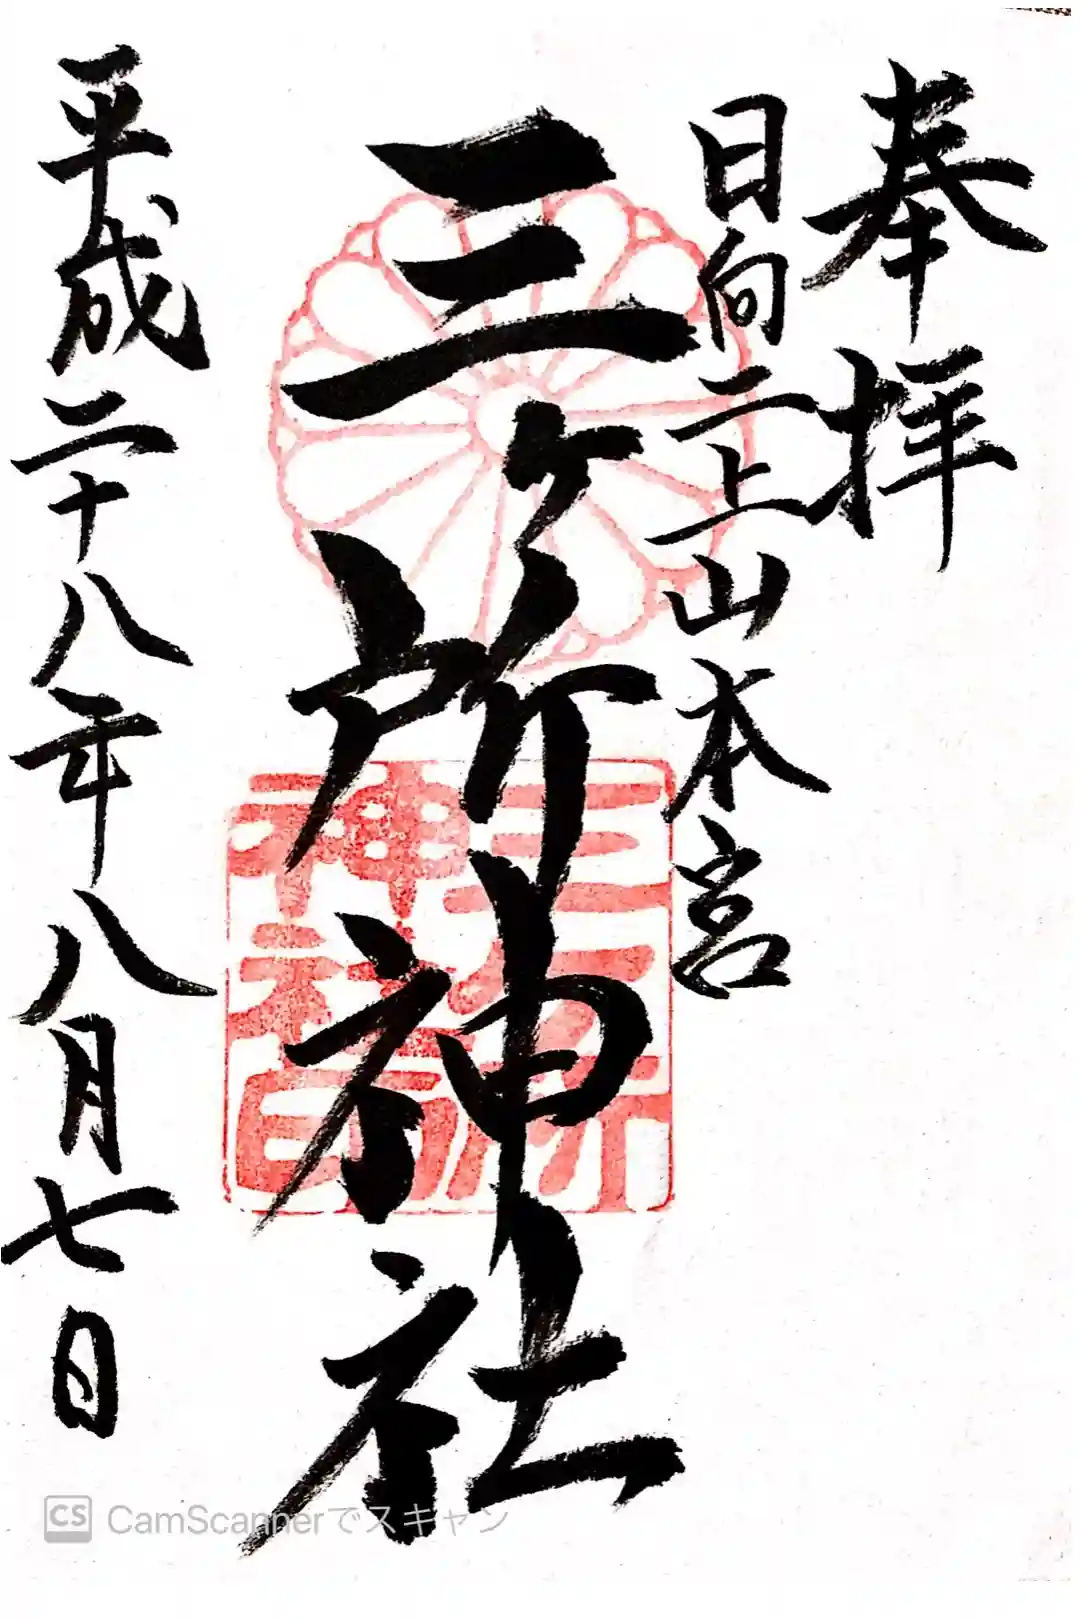 奉拝
日向二上山本宮
三ヶ所神社
三ヶ所
神社印
平成二十八年八月七日
CS CamScannerでスキャン